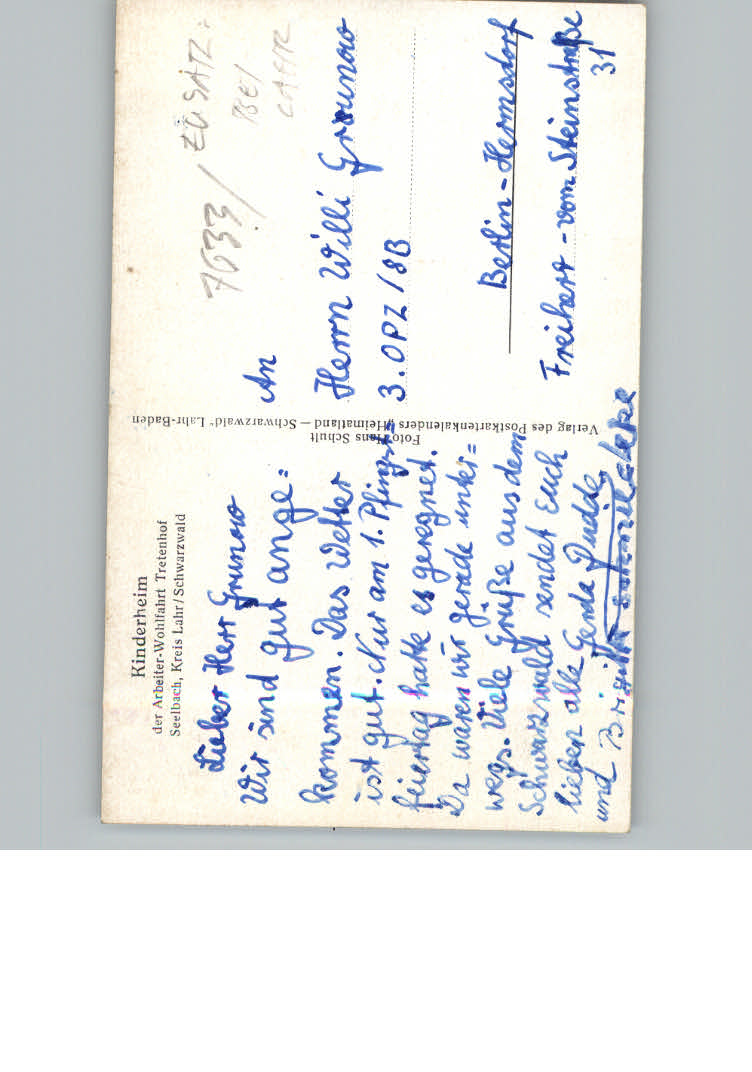 Kinderheim
der Arbeiter-Wohlfahrt Tretenhof
Seelbach, Kreis Lahr/Schwarzwald
Lieber Herr Grunow
Wir sind gut ange=
kommen. Das Wetter
ist gut. Nur am 1. Pfingst=
feiertag hatte es geregnet.
Da waren wir gerade unter=
wegs. Viele Grüße aus dem
Schwarzwald sendet Euch
lieben alle Gerda Pudde
und Brigitte
Foto Hans Schult
Verlag des Postkartenkalenders „Heimatland — Schwarzwald" Lahr-Baden
7633/
ZUSATZ:
BEI
LAHR
An
Herrn Willi Grunow
3. OPZ / 8B
Berlin-Hermsdorf
Freiherr-vom Steinstraße
31